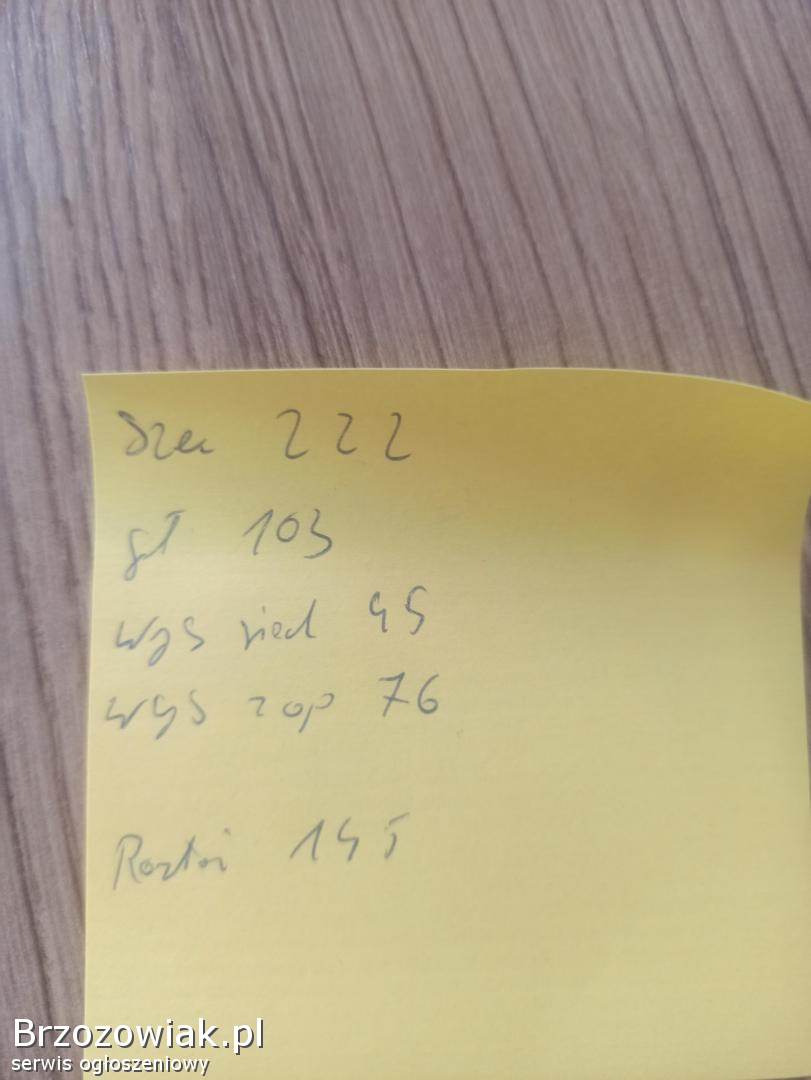 Szer 222
gł 103
wys sied 45
wys zap 76
Rozłoż 145
Brzozowiak.pl
serwis ogłoszeniowy